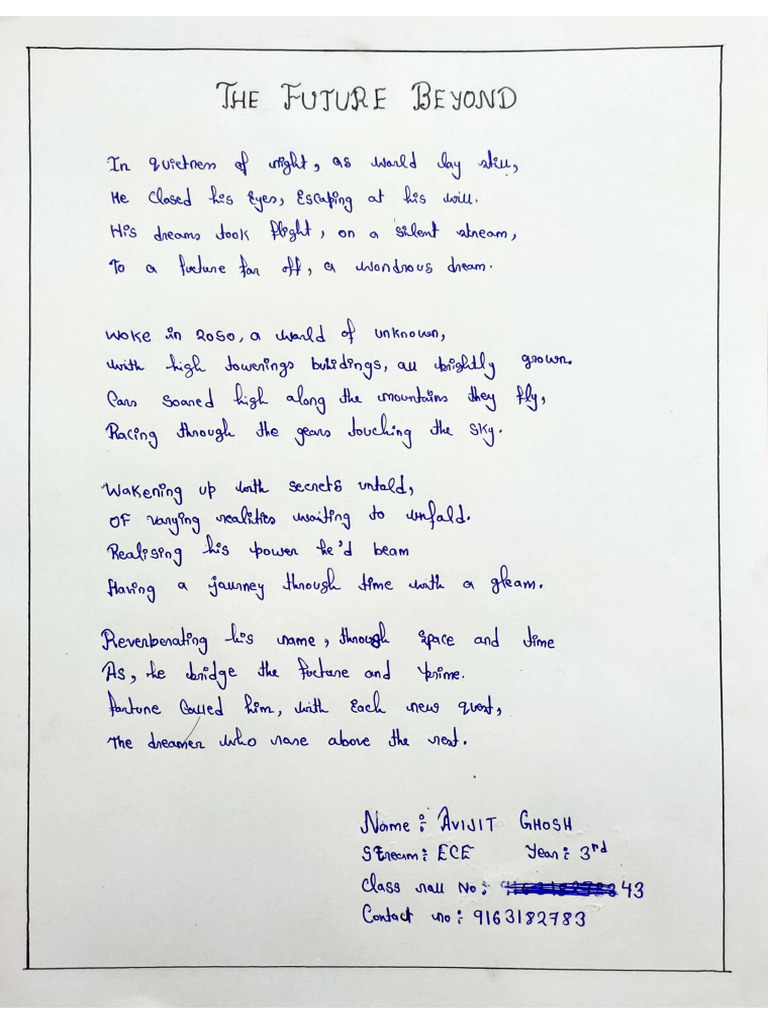 THE FUTURE BEYOND
In quietness of night, as world lay still,
He closed his Eyes, Escaping at his will.
His dreams took flight, on a silent stream,
To a fucture far off, a wondrous dream.
Woke in 2050, a world of unknown,
with high towerings buildings, all brightly grown.
Cars soared high along the mountains they fly,
Racing through the gears touching the sky.
Wakening up with secrets untold,
OF varying realities waiting to unfold.
Realising his power he'd beam
Having a journey through time with a gleam.
Reverberating his name, through space and time
As, he bridge the fucture and prime.
Fortune Called him, with Each new quest,
The dreamer who rose above the rest.
Name: AVIJIT GHOSH
Stream: ECE Year: 3rd
Class roll No: 43
Contact no: 9163182783